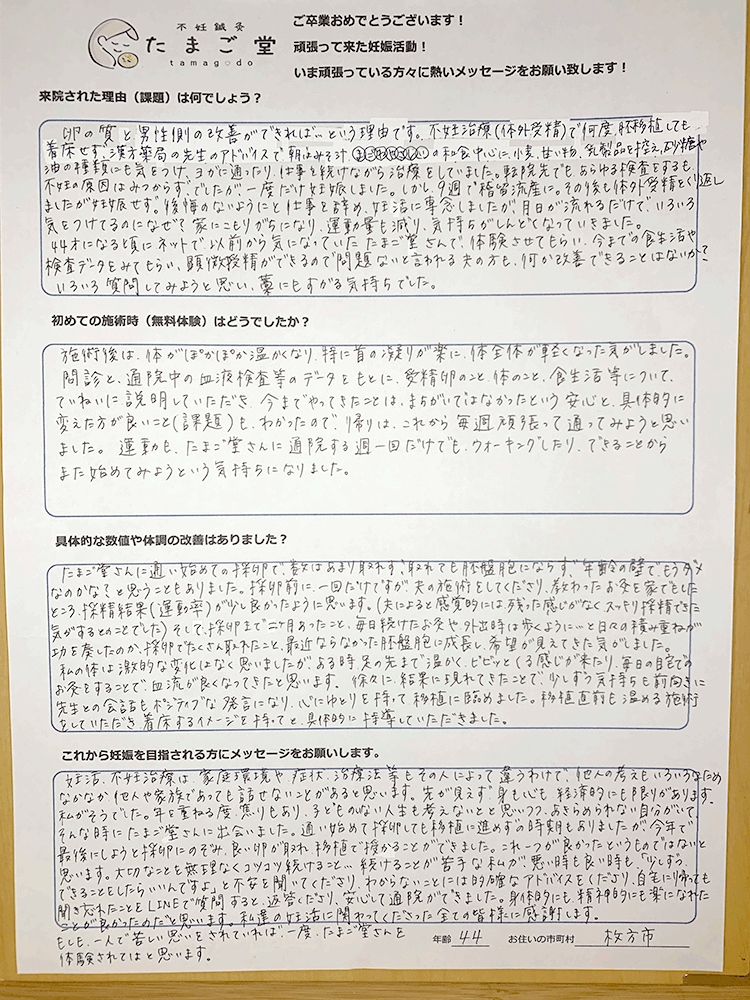 不妊鍼灸
たまご堂
tamagodo
ご卒業おめでとうございます！
頑張って来た妊娠活動！
いま頑張っている方々に熱いメッセージをお願い致します！
来院された理由（課題）は何でしょう？
卵の質と男性側の改善ができれば…という理由です。不妊治療（体外受精）で何度胚移植しても
着床せず、漢方薬局の先生のアドバイスで朝はみそ汁、まごわやさしいの和食中心に、小麦、甘い物、乳製品を控え、お砂糖や
油の種類にも気をつけ、ヨガに通ったり、仕事を続けながら治療をしていました。転院先でもあらゆる検査をするも
不妊の原因はみつからず、でしたが一度だけ妊娠しました。しかし、9週で稽留流産に。その後も体外受精をくり返し
ましたが妊娠せず。後悔のないようにと仕事を辞め、妊活に専念しましたが、月日が流れるだけで、いろいろ
気をつけてるのになぜ？家にこもりがちになり、運動量も減り、気持ちがしんどくなっていきました。
44才になる頃にネットで以前から気になっていたたまご堂さんで、体験させてもらい、今までの食生活や
検査データをみてもらい、顕微授精ができるので問題ないと言われる夫の方も、何か改善できることはないか？
いろいろ質問してみようと思い、藁にもすがる気持ちでした。
初めての施術時（無料体験）はどうでしたか？
施術後は、体がぽかぽか温かくなり、特に首の凝りが楽に、体全体が軽くなった気がしました。
問診と、通院中の血液検査等のデータをもとに、受精卵のこと、体のこと、食生活等について、
ていねいに説明していただき、今までやってきたことは、まちがいではなかったという安心と、具体的に
変えた方が良いこと（課題）も、わかったので、帰りは、これから毎週頑張って通ってみようと思い
ました。運動も、たまご堂さんに通院する週一回だけでも、ウォーキングしたり、できることから
また始めてみようという気持ちになりました。
具体的な数値や体調の改善はありました？
たまご堂さんに通い始めての採卵で、数はあまり取れず、取れても胚盤胞にならず、年齢の壁で、もうダメ
なのかな？と思うこともありました。採卵前に、一回だけですが、夫の施術をしてくださり、教わったお灸を家でもした
ところ、採精結果（運動率）が少し良かったように思います。（夫によると感覚的には、残った感じがなくスッキリ採精できた
気がするとのことでした）そして、採卵まで二ヶ月あったこと、毎日続けたお灸や、外出時は歩くように…と日々の積み重ねが
功を奏したのか、採卵でたくさん取れたこと、最近ならなかった胚盤胞に成長し、希望が見えてきた気がしました。
私の体は激的な変化はなく思いましたが、ある時、足の先まで温かく、ピピッとくる感じが来たり、毎日の自宅での
お灸をすることで、血流が良くなってきたと思います。徐々に、結果に現れてきたことで、少しずつ気持ちも前向きに
先生との会話もポジティブな発言になり、心にゆとりを持って移植に臨めました。移植直前も温める施術
をしていただき着床するイメージを持ってと、具体的に指導していただきました。
これから妊娠を目指される方にメッセージをお願いします。
妊活、不妊治療は、家庭環境や症状、治療法等もその人によって違うわけで、他人の考えもいろいろなため
なかなか他人や家族であっても話せないことがあると思います。先が見えず身も心も経済的にも限りがあります。
私がそうでした。年を重ねる度、焦りもあり、子どものない人生も考えないとと思いつつ、あきらめられない自分がいて、
そんな時にたまご堂さんに出会いました。通い始めて採卵しても移植に進めずの時期もありましたが、今年で
最後にしようと採卵にのぞみ、良い卵が取れ、移植で授かることができました。これ一つが良かったというものではないと
思います。大切なことを無理なくコツコツ続けること…続けることが苦手な私が悪い時も良い時も、「少しずつ、
できることをしたらいいんですよ」と不安を聞いてくださり、わからないことには的確なアドバイスをくださり、自宅に帰っても
聞き忘れたことをLINEで質問すると、返答くださり、安心して通院ができました。身体的にも、精神的にも楽になれた
ことが良かったのだと思います。私達の妊活に関わってくださった全ての皆様に感謝します。
もしも、一人で苦しい思いをされていれば、一度、たまご堂さんを
体験されてはと思います。
年齢 44 お住いの市町村 枚方市